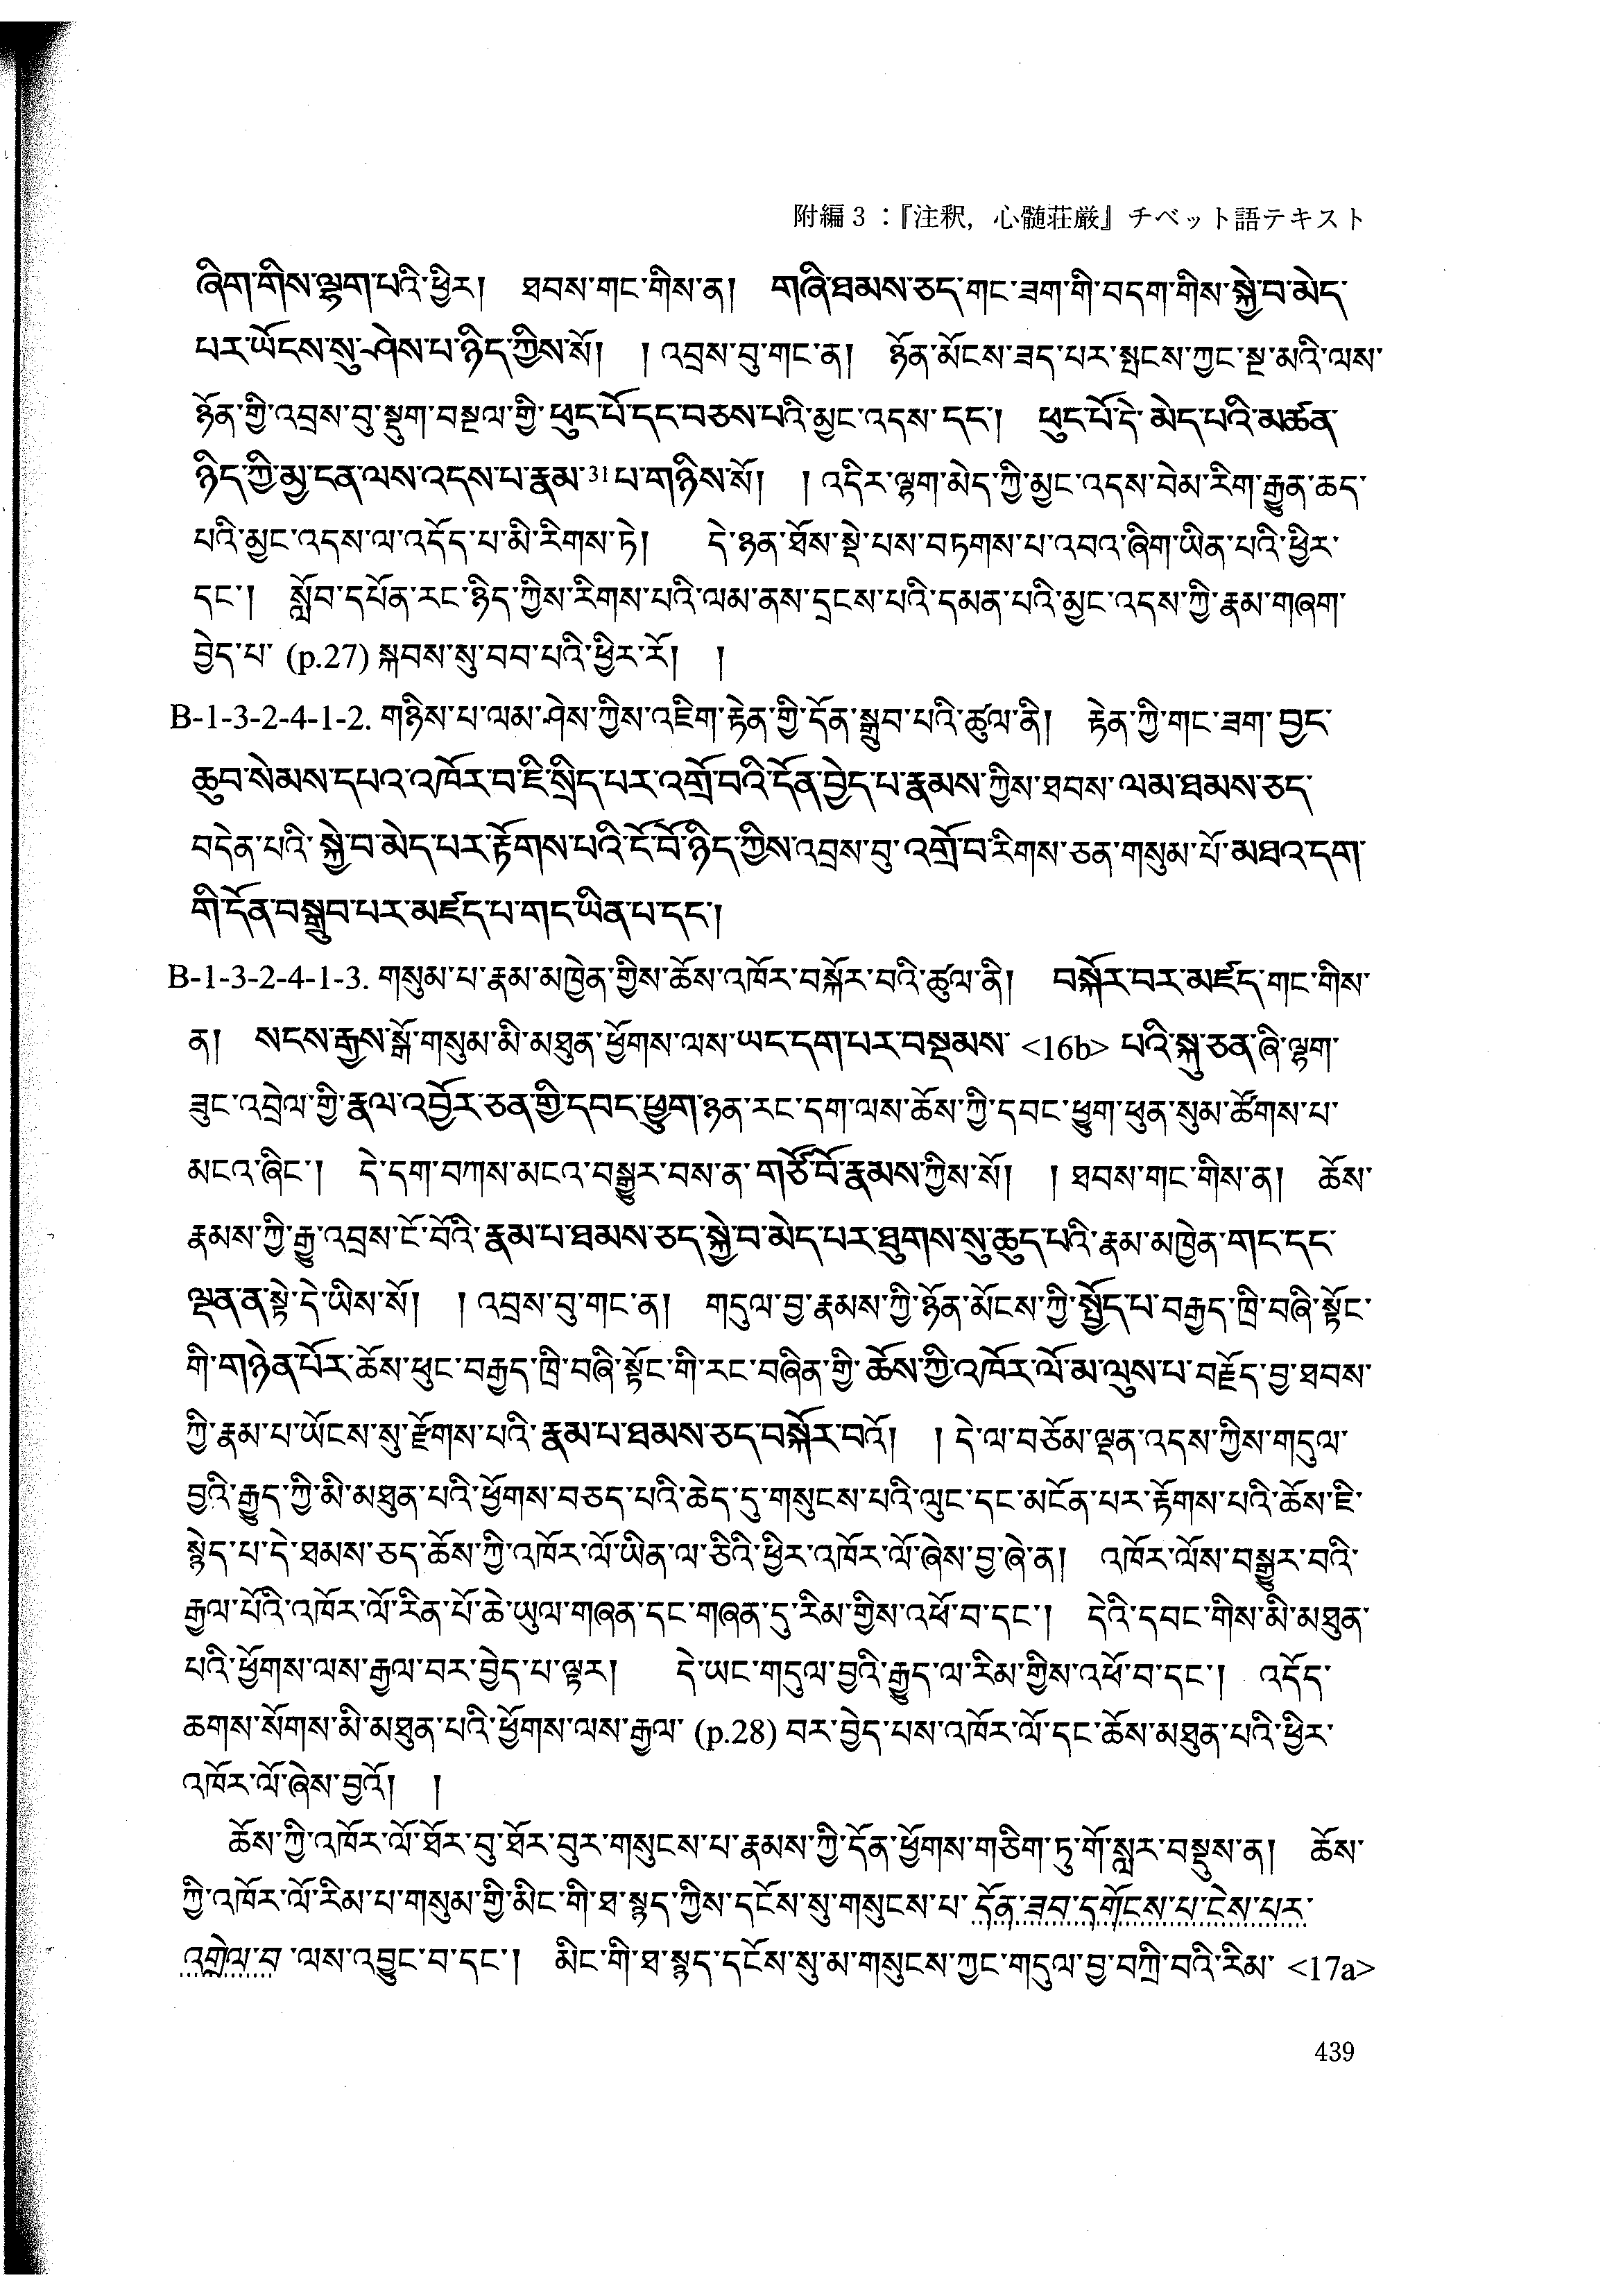 附編 3：『注釈，心髄荘厳』チベット語テキスト
ཞིག་གིས་ལྷག་པའི་ཕྱིར། ཐབས་གང་གིས་ན། གཞི་ཐམས་ཅད་གང་ཟག་གི་བདག་གིས་སྐྱེ་བ་མེད་
པར་ཡོངས་སུ་ཤེས་པ་ཉིད་ཀྱིས་སོ། །འབྲས་བུ་གང་ན། ཉོན་མོངས་ཟད་པར་སྤངས་ཀྱང་སྔ་མའི་ལས་
ཉོན་གྱི་འབྲས་བུ་སྡུག་བསྔལ་གྱི་ཕུང་པོ་དང་བཅས་པའི་མྱང་འདས་དང༌། ཕུང་པོ་དེ་མེད་པའི་མཚན་
ཉིད་ཀྱི་མྱ་ངན་ལས་འདས་པ་རྣམ་31)པ་གཉིས་སོ། །འདིར་ལྷག་མེད་ཀྱི་མྱང་འདས་བེམ་རིག་རྒྱུན་ཆད་
པའི་མྱང་འདས་ལ་འདོད་པ་མི་རིགས་ཏེ། དེ་ཉན་ཐོས་སྡེ་པས་བཏགས་པ་འབའ་ཞིག་ཡིན་པའི་ཕྱིར་
དང༌། སློབ་དཔོན་རང་ཉིད་ཀྱིས་རིགས་པའི་ལམ་ནས་དྲངས་པའི་དམན་པའི་མྱང་འདས་ཀྱི་རྣམ་གཞག་
བྱེད་པ་ (p.27) སྐབས་སུ་བབ་པའི་ཕྱིར་རོ། །
B-1-3-2-4-1-2. གཉིས་པ་ལམ་ཤེས་ཀྱིས་འཇིག་རྟེན་གྱི་དོན་སྒྲུབ་པའི་ཚུལ་ནི། རྟེན་ཀྱི་གང་ཟག་བྱང་
ཆུབ་སེམས་དཔའ་འཁོར་བ་ཇི་སྲིད་པར་འགྲོ་བའི་དོན་བྱེད་པ་རྣམས་ཀྱིས་ཐབས་ལམ་ཐམས་ཅད་
བདེན་པའི་སྐྱེ་བ་མེད་པར་རྟོགས་པའི་ངོ་བོ་ཉིད་ཀྱིས་འབྲས་བུ་འགྲོ་བ་རིགས་ཅན་གསུམ་པོ་མཐའ་དག་
གི་དོན་བསྒྲུབ་པར་མཛད་པ་གང་ཡིན་པ་དང༌།
B-1-3-2-4-1-3. གསུམ་པ་རྣམ་མཁྱེན་གྱིས་ཆོས་འཁོར་བསྐོར་བའི་ཚུལ་ནི། བསྐོར་བར་མཛད་གང་གིས་
ན། སངས་རྒྱས་སྒོ་གསུམ་མི་མཐུན་ཕྱོགས་ལས་ཡང་དག་པར་བསྡམས་ <16b> པའི་སྐུ་ཅན་ཞི་ལྷག་
ཟུང་འབྲེལ་གྱི་རྣལ་འབྱོར་ཅན་གྱི་དབང་ཕྱུག་ཉན་རང་དག་ལས་ཆོས་ཀྱི་དབང་ཕྱུག་ཕུན་སུམ་ཚོགས་པ་
མངའ་ཞིང༌། དེ་དག་བཀས་མངའ་བསྒྱུར་བས་ན་གཙོ་བོ་རྣམས་ཀྱིས་སོ། །ཐབས་གང་གིས་ན། ཆོས་
རྣམས་ཀྱི་རྒྱུ་འབྲས་ངོ་བོའི་རྣམ་པ་ཐམས་ཅད་སྐྱེ་བ་མེད་པར་ཐུགས་སུ་ཆུད་པའི་རྣམ་མཁྱེན་གང་དང་
ལྡན་ན་སྟེ་དེ་ཡིས་སོ། །འབྲས་བུ་གང་ན། གདུལ་བྱ་རྣམས་ཀྱི་ཉོན་མོངས་ཀྱི་སྤྱོད་པ་བརྒྱད་ཁྲི་བཞི་སྟོང་
གི་གཉེན་པོར་ཆོས་ཕུང་བརྒྱད་ཁྲི་བཞི་སྟོང་གི་རང་བཞིན་གྱི་ཆོས་ཀྱི་འཁོར་ལོ་མ་ལུས་པ་བརྗོད་བྱ་ཐབས་
ཀྱི་རྣམ་པ་ཡོངས་སུ་རྫོགས་པའི་རྣམ་པ་ཐམས་ཅད་བསྐོར་བའོ། །དེ་ལ་བཅོམ་ལྡན་འདས་ཀྱིས་གདུལ་
བྱའི་རྒྱུད་ཀྱི་མི་མཐུན་པའི་ཕྱོགས་བཅད་པའི་ཆེད་དུ་གསུངས་པའི་ལུང་དང་མངོན་པར་རྟོགས་པའི་ཆོས་ཇི་
སྙེད་པ་དེ་ཐམས་ཅད་ཆོས་ཀྱི་འཁོར་ལོ་ཡིན་ལ་ཅིའི་ཕྱིར་འཁོར་ལོ་ཞེས་བྱ་ཞེ་ན། འཁོར་ལོས་བསྒྱུར་བའི་
རྒྱལ་པོའི་འཁོར་ལོ་རིན་པོ་ཆེ་ཡུལ་གཞན་དང་གཞན་དུ་རིམ་གྱིས་འཕོ་བ་དང༌། དེའི་དབང་གིས་མི་མཐུན་
པའི་ཕྱོགས་ལས་རྒྱལ་བར་བྱེད་པ་ལྟར། དེ་ཡང་གདུལ་བྱའི་རྒྱུད་ལ་རིམ་གྱིས་འཕོ་བ་དང༌། འདོད་
ཆགས་སོགས་མི་མཐུན་པའི་ཕྱོགས་ལས་རྒྱལ་ (p.28) བར་བྱེད་པས་འཁོར་ལོ་དང་ཆོས་མཐུན་པའི་ཕྱིར་
འཁོར་ལོ་ཞེས་བྱའོ། །
ཆོས་ཀྱི་འཁོར་ལོ་ཐོར་བུ་ཐོར་བུར་གསུངས་པ་རྣམས་ཀྱི་དོན་ཕྱོགས་གཅིག་ཏུ་གོ་སླར་བསྡུས་ན། ཆོས་
ཀྱི་འཁོར་ལོ་རིམ་པ་གསུམ་གྱི་མིང་གི་ཐ་སྙད་ཀྱིས་དངོས་སུ་གསུངས་པ་དོན་ཟབ་དགོངས་པ་ངེས་པར་
འགྲེལ་བ་ལས་འབྱུང་བ་དང༌། མིང་གི་ཐ་སྙད་དངོས་སུ་མ་གསུངས་ཀྱང་གདུལ་བྱ་བཀྲི་བའི་རིམ་ <17a>
439